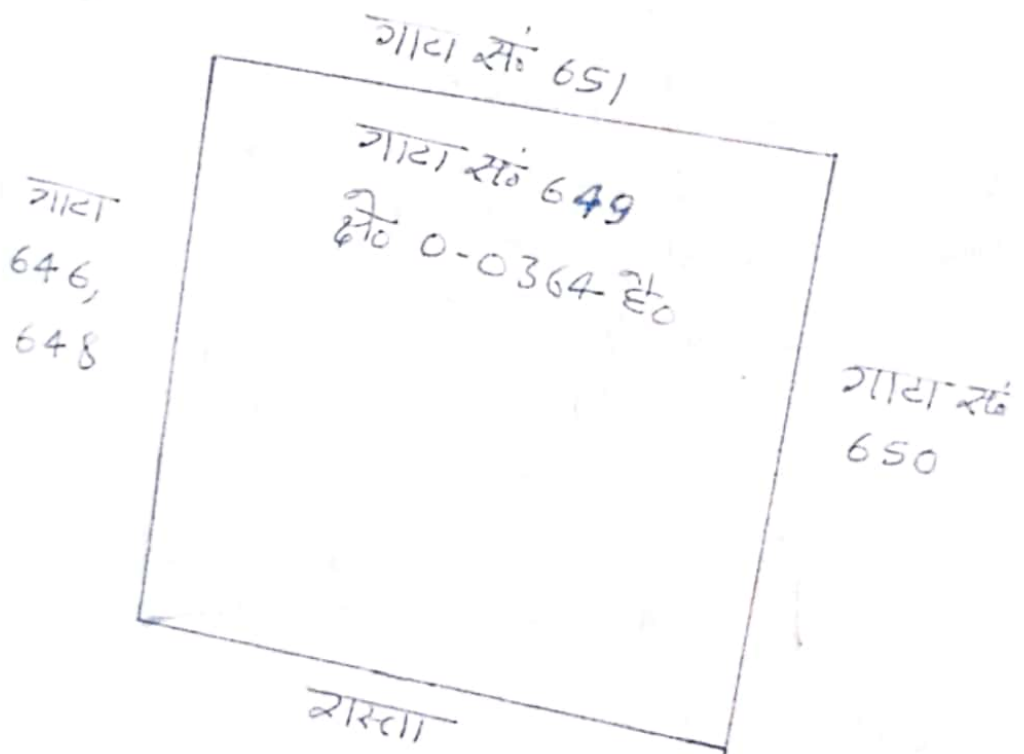 गाटा सं० 651
गाटा सं० 649
क्षे० 0-0364 हे०
गाटा
646,
648
गाटा सं०
650
रास्ता